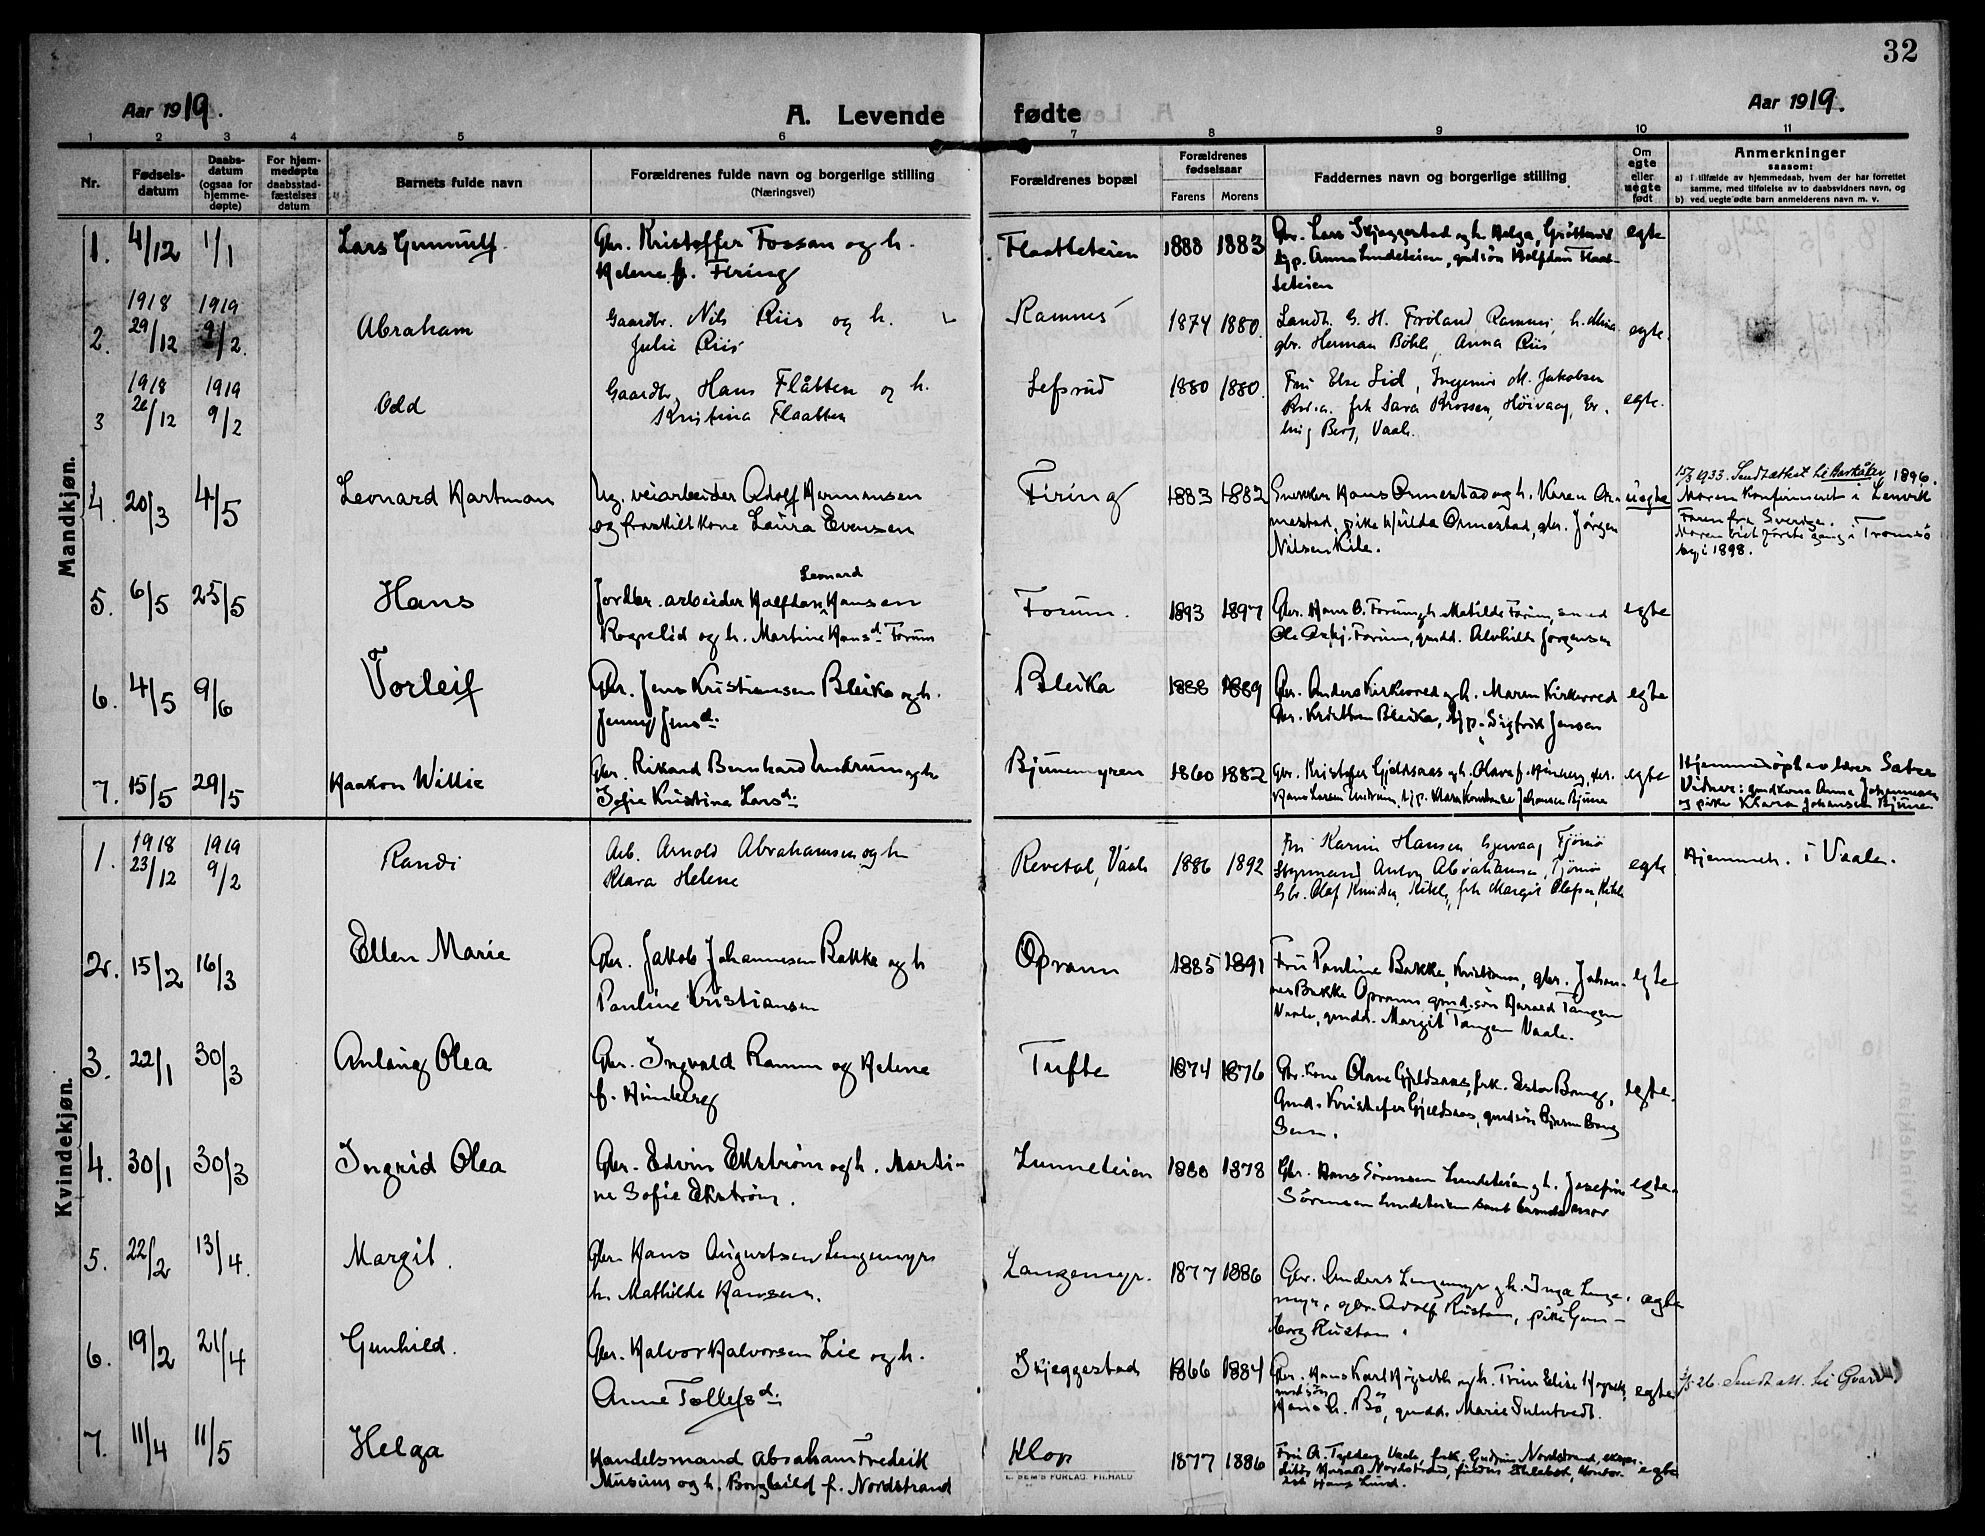 32
Aar 1919.
A. Levende fødte
Aar 1919.
1 2 3 4 5 6 7 8 9 10 11
Nr.
Fødsels-
datum
Daabs-
datum
(ogsaa for
hjemme-
døpte)
For hjem-
medøpte
daabsstad-
fæstelses
datum
Barnets fulde navn
Forældrenes fulde navn og borgerlige stilling
(Næringsvei)
Forældrenes bopæl
Forældrenes
fødselsaar
Farens Morens
Faddernes navn og borgerlige stilling
Om
egte
eller
uegte
født
Anmerkninger
saasom:
a) i tilfælde av hjemmedaab, hvem der har forrettet
samme, med tilføielse av to daabsvidners navn, og
b) ved uegte fødte barn anmelderens navn m. v.
Mandkjøn.
1. 4/12 1/1 Lars Gunnulf. Gbr. Kristoffer Fossan og h.
Helene f. Firing
Flaatteteien 1888 1883 Gbr. Lars Skjeggestad og h. Helga,
Anna Lundeteien, gmdsøn Halfdan Flaat-
teteien
egte
1918 1919
2. 29/12 9/2. Abraham Gaardbr. Nils Riis og h.
Julie Riis
Ramnes 1874 1880. Landh. G. H. Fröland Ramnes, h. Mina
gbr. Herman Böhle, Anna Riis
egte.
1918 1919
3 26/12 9/2 Odd Gaardbr. Hans Flåtten og h.
Kristina Flaatten
Lefsrud 1880 1880. Fru Else Lid, Ingeniør M. Jakobsen
frk Sara Brossen, Höivaag, Er-
ling Berg, Vaale.
egte.
4. 20/3 4/5 Leonard Hartman Ug. veiarbeider Adolf Hermansen
og fraskilt kone Laura Evensen
Firing 1883 1882 Snekker Hans Ormestad og h. Karen Or-
mestad, pike Hulda Ormestad, gbr. Jørgen
Nilsen Kile.
uegte
1933. Sendt attest til 1896.
Moren konfirmeret i Lenvik
Faren fra Sverige.
Moren viet første gang i Tromsø
by i 1898.
5. 6/5 25/5 Hans
Leonard
Jordbr. arbeider Halfdan Hansen
Rogelid og h. Martine Hansd. Forum
Forum. 1893 1897 Gbr. Hans B. Forum og h. Matilde Forum,
Ole Forum, gmdd. Alvhilde Jørgensen
egte
6. 4/5 9/6 Torleif Gbr. Jens Kristiansen Bleika og h.
Jenny Jensd.
Bleika 1888 1889 Gbr. Anders Kirkevred og h. Maren Kirkevred
Gbr. Kristian Bleika, Sigfrid Jensen
egte
7. 15/5 29/5 Haakon Willie Gbr. Rikard Bernhard Undrum og h.
Sofie Kristine Larsd.
Bjunemyren 1860 1882 Gbr. Kristofer Gjeldsaas og h. Olava f. Hinberg, gbr.
Hans Larsen Undrum, Klara Konstanse Johansen Bjune
egte
Hjemmedøpt av lærer Sater
Vidner: gmdkone Anna Johannesen
og pike Klara Johansen Bjune
Kvindekjøn.
1918 1919
1. 23/12 9/2 Randi Arb. Arnold Abrahamsen og h.
Klara Helene
Revetal, Vaale 1886 1892 Fru Karin Hansen Tjømø
Styrmand Anton Abrahamsen, Tjømø
Gbr. Olaf Knudsen, frk Margit Olafsen,
egte
Hjemmeh. i Vaale.
2. 15/2 16/3 Ellen Marie Gbr. Jakob Johannesen Bakke og h
Pauline Kristiansen
Oprann 1885 1891 Fru Pauline Bakke, Kristiania, gbr. Johan-
nes Bakke Oprann gmd.søn Harald Tangen
Vaale, gmdd. Margit Tangen Vaale.
egte
3. 22/1 30/3 Anlaug Olea Gbr. Ingvald Ramm og Helene
f. Hinberg
Tufte 1874 1876 Gbr. kone Olava Gjeldsaas, frk. Ester Bang,
Gmd. Kristofer Gjeldsaas, gmdsøn Bjarne Bang
Sem.
egte.
4. 30/1 30/3 Ingrid Olea Gbr. Edvin Ekstrøm og h. Marti-
ne Sofie Ekstrøm.
Lunneteien 1880 1878 Gbr. Hans Sørensen Lundeteien og h. Josefine
Sørensen Lundeteien samt barnets mor
egte.
5. 22/2 13/4 Margit. Gbr. Hans Augustsen Langemyr
h. Mathilde Hansen.
Langemyr. 1877 1886 Gbr. Anders Langemyr og h. Inga Lange-
myr, gbr. Adolf Rustan, pike Gun-
borg Rustan.
egte
6. 19/2 21/4 Gunhild. Gbr. Halvor Halvorsen Lie og h.
Anne Tollefsd.
Skjeggestad 1866 1884 Gbr. Hans Karl Høgseth og h. Trine Elise Høgseth
gmdsøn
Hans h. Bø, gmdd. Marie
egte
26. Sendt att. til
7. 11/4 11/5 Helga Handelsmand Abraham Fredrik
Musum og h. Borghild f. Nordstrand
Klop 1877 1886 Fru A. Vaale, frk. Gudrun Nordstrand, ekspe-
ditør Harald Nordstrand, kontor-
ist Hans Lund.
egte
E. SEM'S FORLAG. FR.HALD